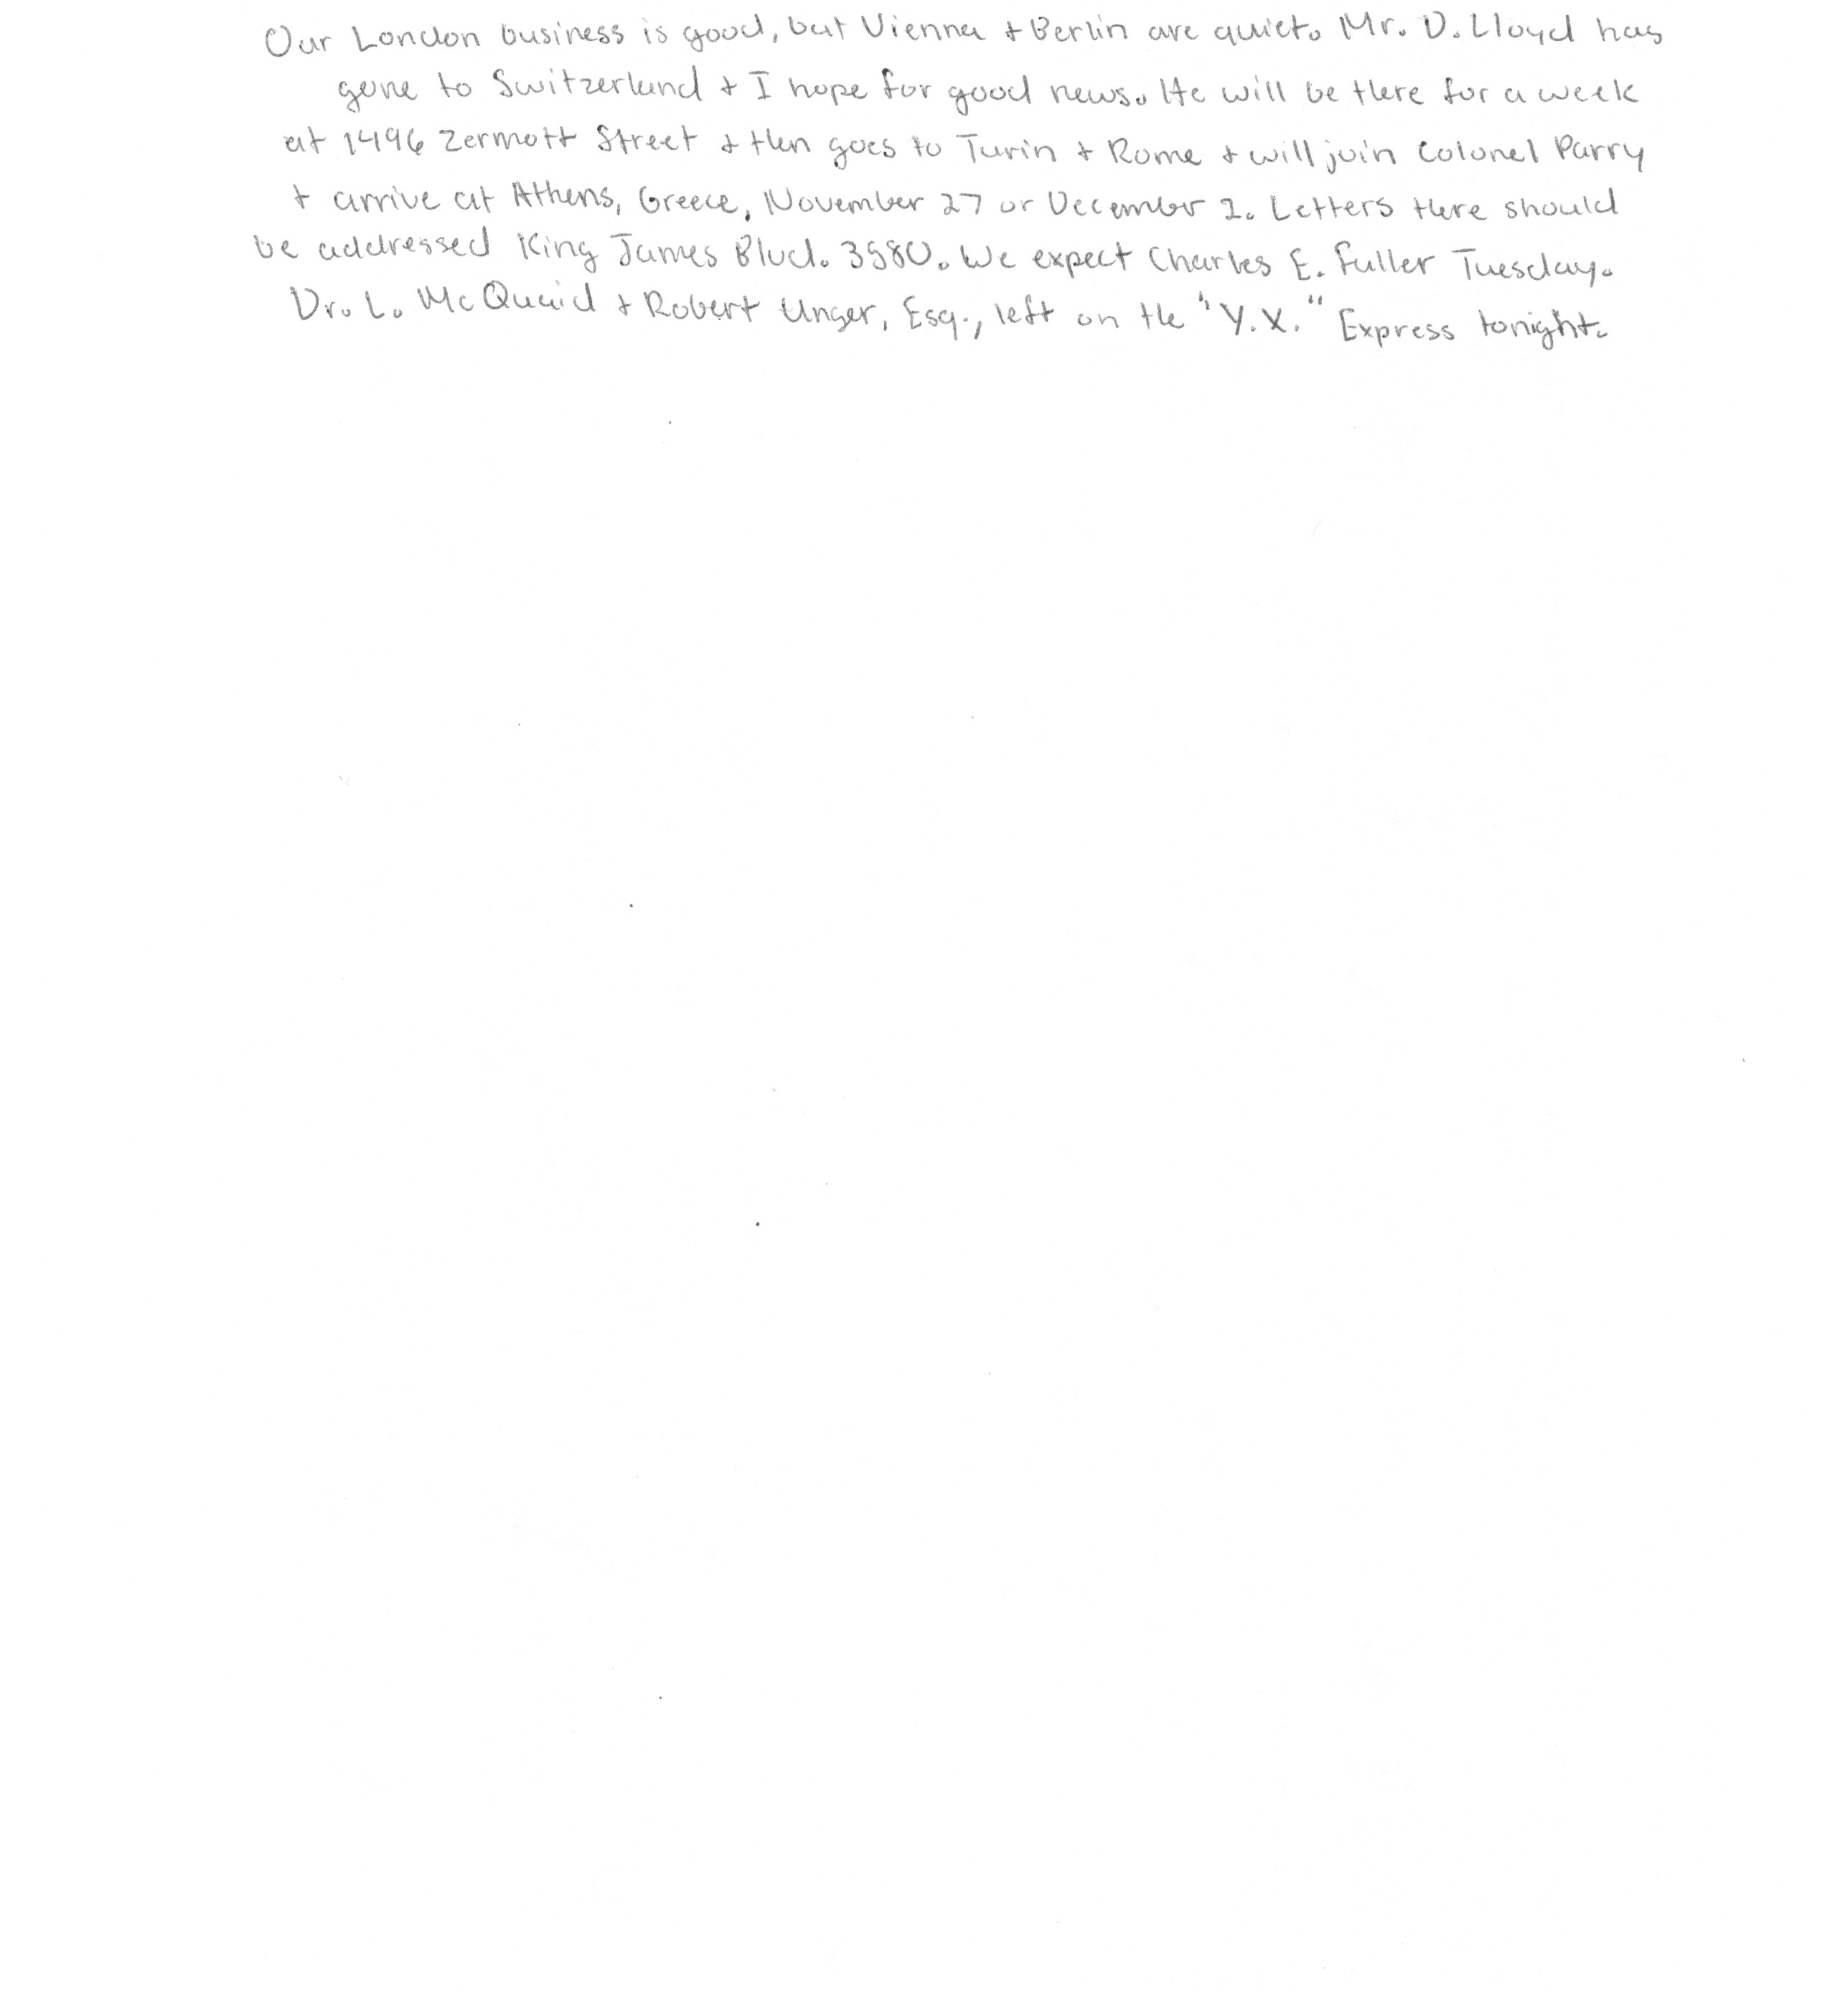 Our London business is good, but Vienna + Berlin are quiet. Mr. D. Lloyd has
gone to Switzerland + I hope for good news. He will be there for a week
at 1496 Zermott Street + then goes to Turin + Rome + will join Colonel Parry
+ arrive at Athens, Greece, November 27 or December 2. Letters there should
be addressed King James Blvd. 3580. We expect Charles E. Fuller Tuesday.
Dr. L. McQuaid + Robert Unger, Esq., left on the "Y.X." Express tonight.